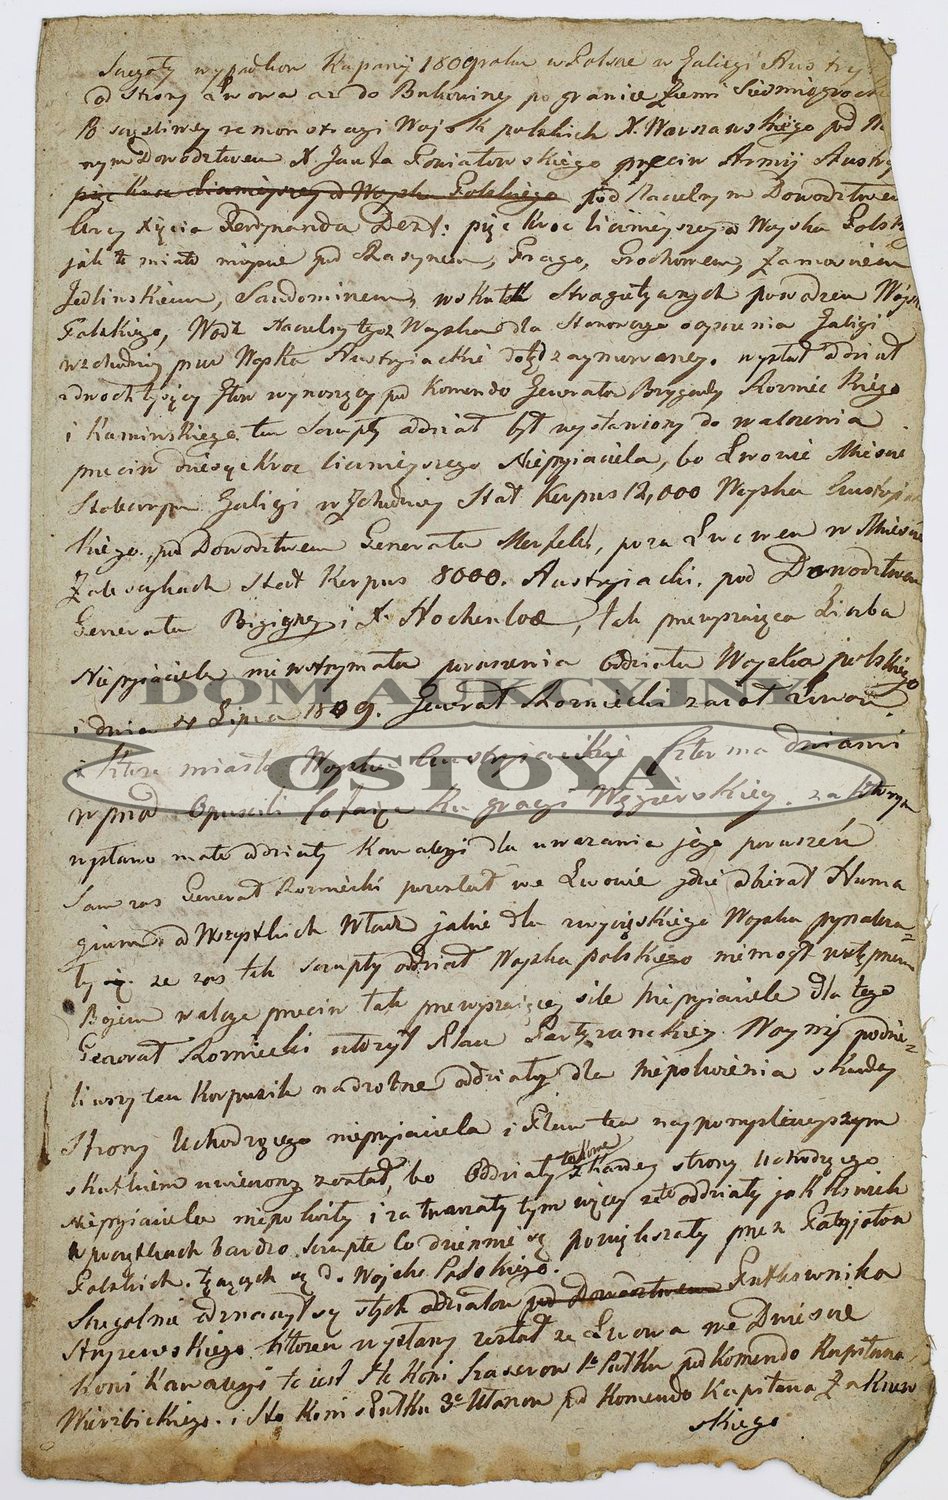 Szczegóły wypadków Kapanij 1809 roku w Polsce w Galicyi Austry
od strony Lwowa az do Bukowiney po granice Ziemi Siedmiogro
Po szczęśliwey remonstragi Woysk polskich X. Warszawskiego pod Na
nym Dowodztwem X. Józefa Poniatowskiego przeciw Armij Austry
pięc kroc licznieyszey od Woyska Polskiego pod Naczelnym Dowodztwem
Arcy Xięcia Ferdynanda Dest: pięc kroc liczniejszey od Woyska Polsk
jak to miało mieysce pod Raszynem, Pragą, Grochowem, Zamosciem
Jedlinskiem, Sandomirzem, wskutek Strategicznych powodzen Woysk
Polskiego, Wódz Naczelny tegoż Woyska dla stanowczego oczyszczenia Galigi
wschodniey przez Woyska Austryiackie dotąd zaymowaney. wysłał oddział
z dwoch tysięcy głów wynoszący pod Komendo Jenerała Brygady Rozniec kiego
i Kaminskiego. ten szczupły oddział był wystawiony do walczenia
przeciw dziesięc kroc licznieyszego Nieprzyjaciela, bo Lwowie Miescie
Stołecznym Galigi wschodniey Stał Korpus 12,000 Woyska Austryiac
kiego pod Dowodztwem Generała Merfeld, poza Lwowem w Miescie
Zaleszczykach stał Korpus 8000. Austryjacki. pod Dowodztwem
Generała Bigigną i X. Hochenloe, Tak przewyższająca Liczba
Nieprzyjaciela niewstrzymała poruszenia Oddziału Woyska polskiego
i dnia Lipca 1809. Generał Rozniecki zajął Lwów.
i które miasto Woyska Austryiackie kilkoma dniami
wprzód Opuscili cofając Ku gragi Węgierskiey. za któr
wysłano małe oddziały Kawaleryi dla uwazania jego poruszeń
Sam zas Generał Rozniecki pozostał we Lwowie gdzie odbierał Homa
gium od Wszystkich Władz jakie dla zwycięskiego Woyska przynale-
ty. ze zas tak szczupły oddział Woyska polskiego niemógł wstępnem
Bojem walczyc przeciw tak przewyższającey sile Nieprzyjaciela dla tego
Generał Rozniecki ułozył Plan Partyzanckiey Woyny podzie-
liwszy ten Korpusik na drobne oddziały dla niepokoienia z kazdey
strony Uchodzącego nieprzyjaciela i Plan ten naypomyslnieyszym
skutkiem uwieńczony został, bo Oddziały z kazdey strony Uchodzącego
Nieprzyjaciela niepokoiły i zatrważały tym więcey ze te oddziały jakkolwiek
w początkach bardzo szczupłe Co dziennie się powiększały przez Patryjotow
Polskich. łączących się do Woyska Polskiego.
Szczegolnie odznaczył się z tych oddziałow pod Dowodztwem Pułkownika
Stryzewskiego ktoren wysłany został ze Lwowa we Dwiescie
Koni Kawaleryi to iest Sto Koni Szaserow 1o Pułku pod Komendo Kapitana
Wierzbickiego. i Sto Koni z Pułku 3o Ułanow pod Komendo Kapitana Zakrzew
skiego
DOM AUKCYJNY
OSTOYA